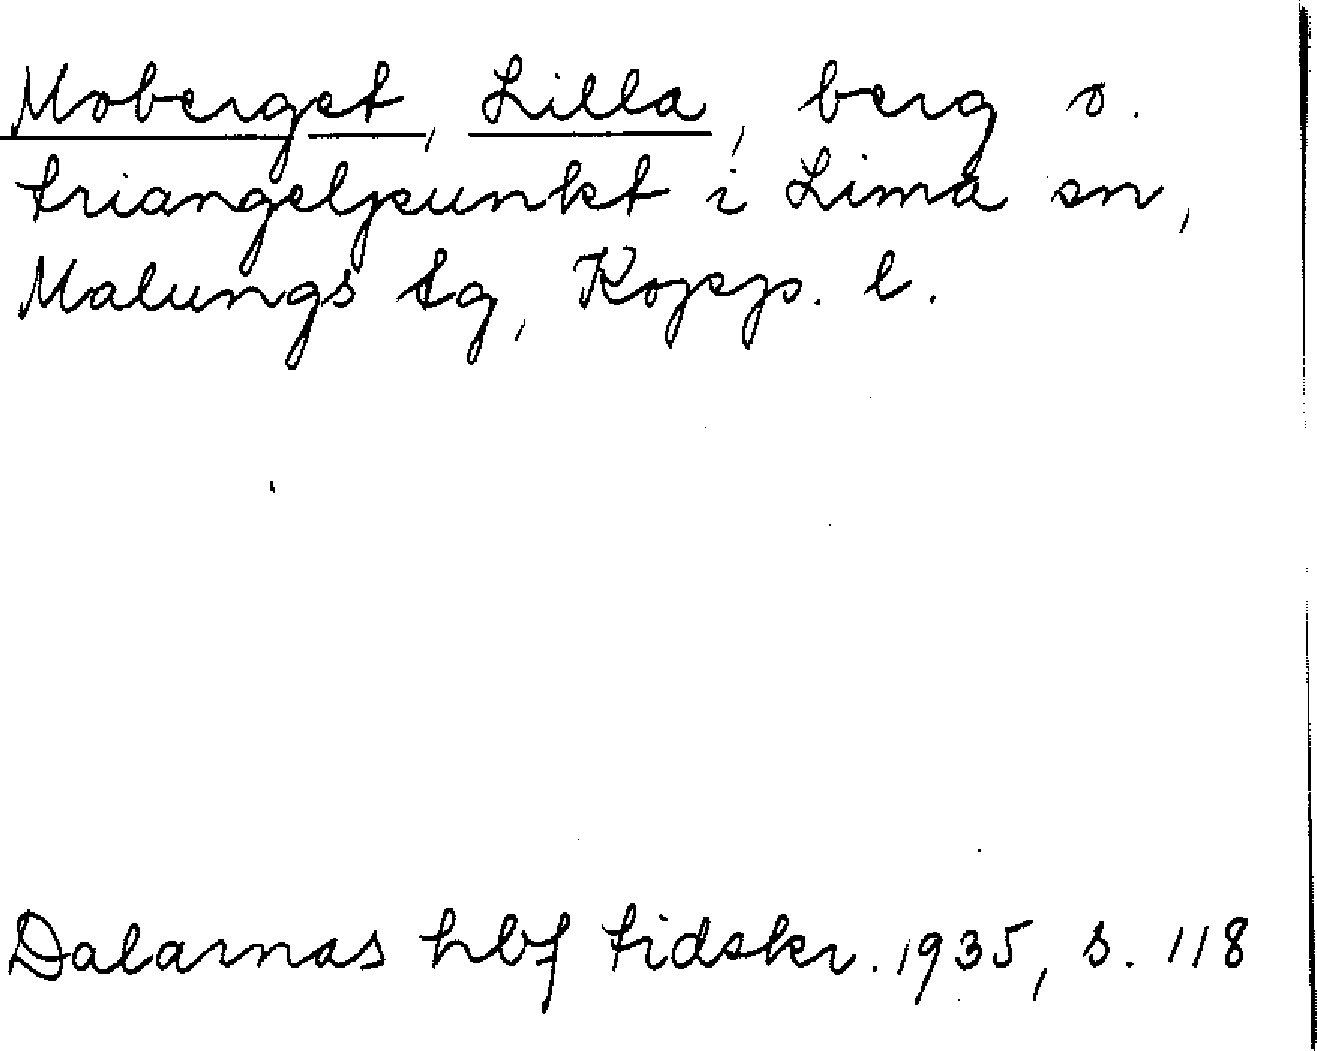 Moberget, Lilla, berg o.
triangelpunkt i Lima sn,
Malungs tg, Kopp. l.
Dalarnas hbf tidskr. 1935, s. 118